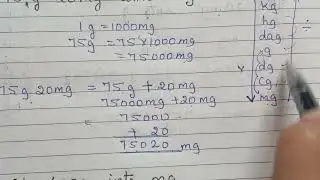 1g = 1000mg
75g = 75×1000mg
= 75000mg
75g 20mg = 75g + 20mg
75000mg + 20mg
75000
+ 20
75020 mg
into mg
kg
hg
dag
g
dg
cg
mg
÷
×